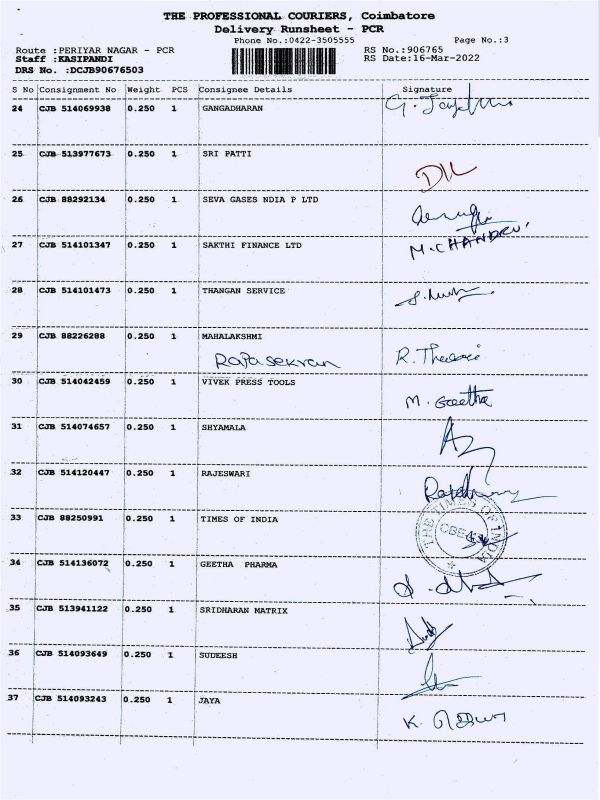 THE PROFESSIONAL COURIERS, Coimbatore
Delivery Runsheet - PCR
Phone No.:0422-3505555
Page No.:3
Route :PERIYAR NAGAR - PCR
RS No.:906765
Staff :KASIPANDI
RS Date:16-Mar-2022
DRS No. :DCJB90676503
S No Consignment No Weight PCS Consignee Details Signature
24 CJB 514069938 0.250 1 GANGADHARAN
25 CJB 513977673 0.250 1 SRI PATTI
26 CJB 88292134 0.250 1 SEVA GASES NDIA P LTD
27 CJB 514101347 0.250 1 SAKTHI FINANCE LTD M.CHANDRU
28 CJB 514101473 0.250 1 THANGAN SERVICE
29 CJB 88226288 0.250 1 MAHALAKSHMI
Rajasekran R.
30 CJB 514042459 0.250 1 VIVEK PRESS TOOLS M. Geetha
31 CJB 514074657 0.250 1 SHYAMALA
32 CJB 514120447 0.250 1 RAJESWARI
33 CJB 88250991 0.250 1 TIMES OF INDIA THE TIMES OF INDIA
CBE
34 CJB 514136072 0.250 1 GEETHA PHARMA
35 CJB 513941122 0.250 1 SRIDHARAN MATRIX
36 CJB 514093649 0.250 1 SUDEESH
37 CJB 514093243 0.250 1 JAYA K.